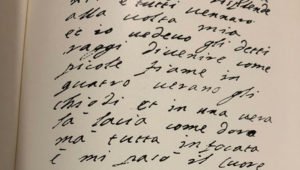 e tutti vennaro
alla volta mia
et io vedevo gli detti
raggi divenire come
picole fiame in
quatro verano gli
chiodi et in una vera
la lacia come doro
ma tutta infocata
e mi pasò il cuore